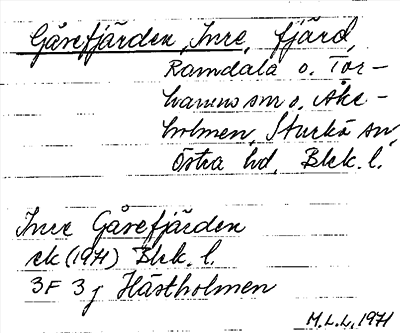 Gåsefjärden, Inre, fjärd,
Ramdala o. Tor-
hamns sn o. Ake-
holmen, Sturkö sn,
Östra hd, Blek. l.
Inre Gåsefjärden
ek (1971) Blek. l.
3F 3j Hästholmen
M.L.L, 1971